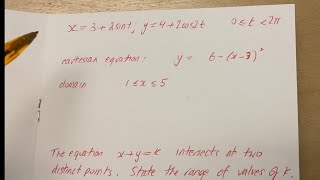 x = 3 + 2sint, y = 4 + 2cos2t    0 ≤ t < 2π
cartesian equation:    y = 6 - (x-3)²
domain    1 ≤ x ≤ 5
The equation x+y=k intersects at two
distinct points. State the range of values of k.